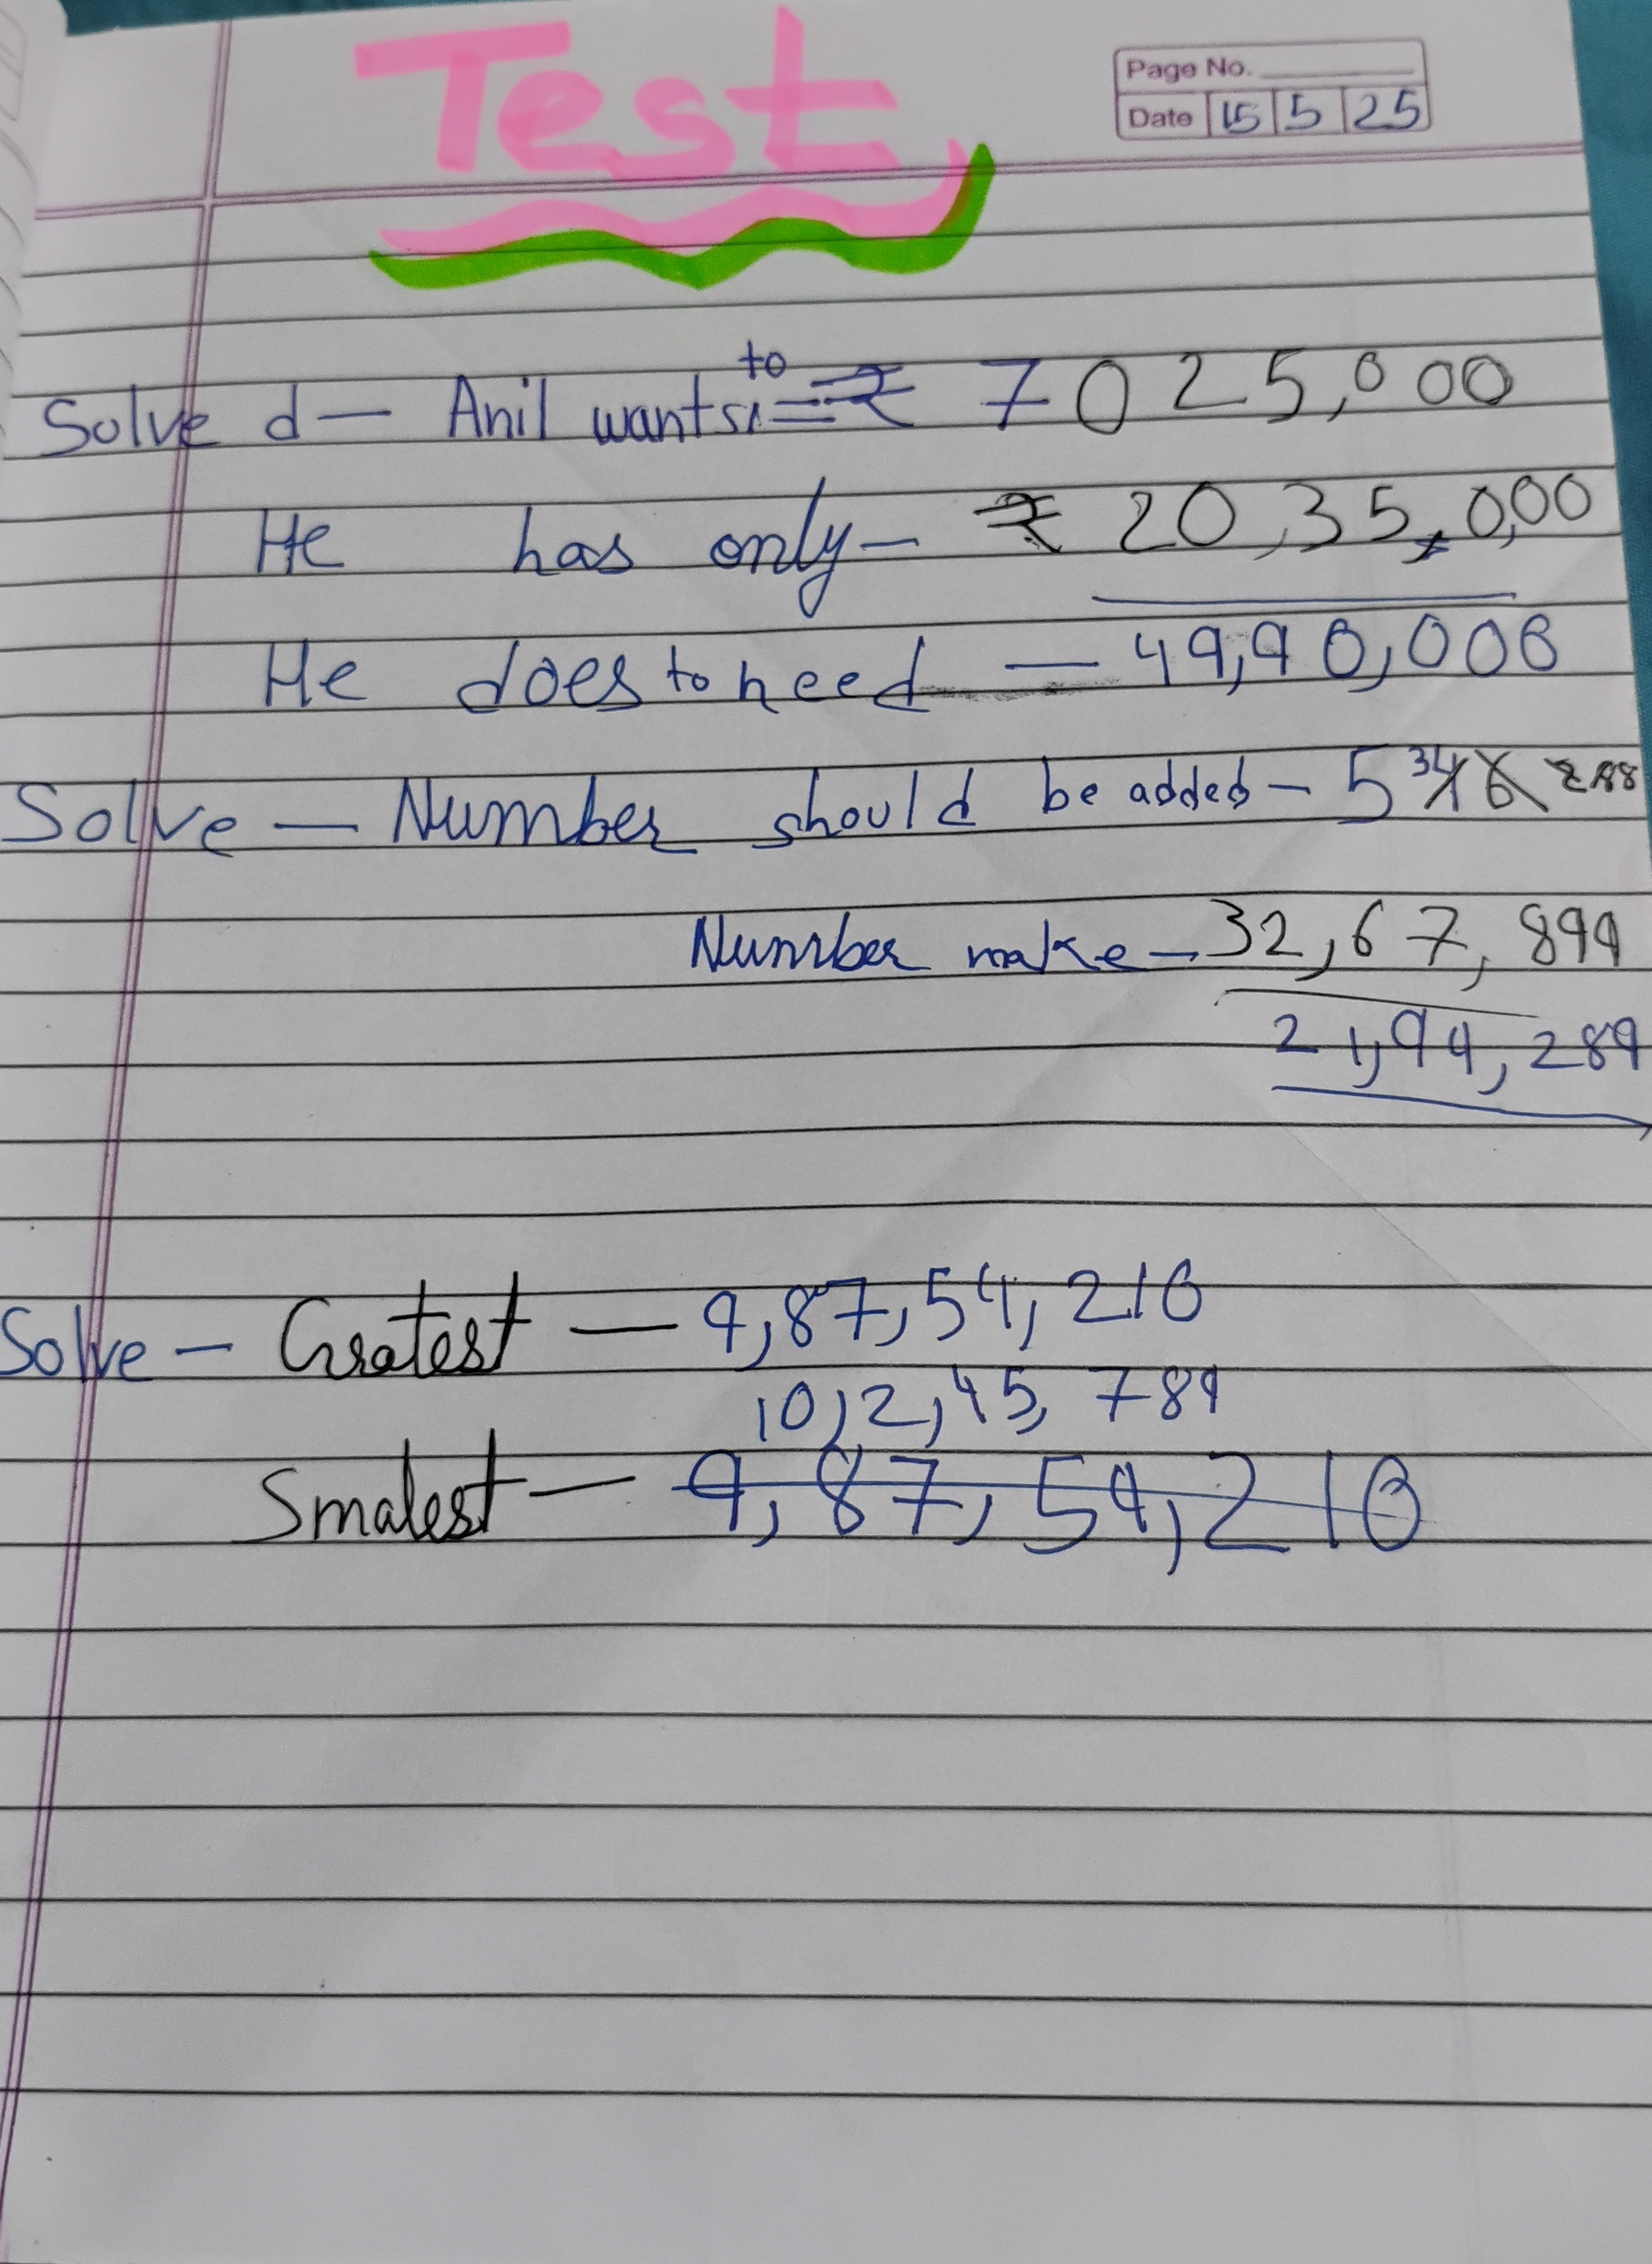 Test
Page No.
Date 15 5 25
Solve d — Anil wants to ₹ 7025,000
He has only - ₹ 20,35,0,00
He does to need — 49,90,000
Solve — Number should be added - 5
Number make - 32,67,899
21,94,289
Solve - Gratest — 9,87,54,210
10,2,45,789
Smalest — 9,87,54,210